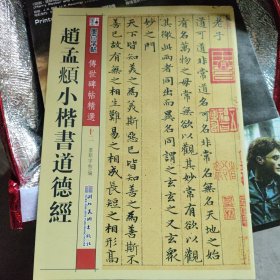 傳世碑帖精選
趙孟頫小楷書道德經
湖北美術出版社
老子
道可道非常道名可名非常名無名天地之始
有名萬物之母常無欲以觀其妙常有欲以觀
其徼此兩者同出而異名同謂之玄玄之又玄衆
妙之門
天下皆知美之為美斯惡已皆知善之為善斯不
善已故有無之相生難易之相成長短之相形高